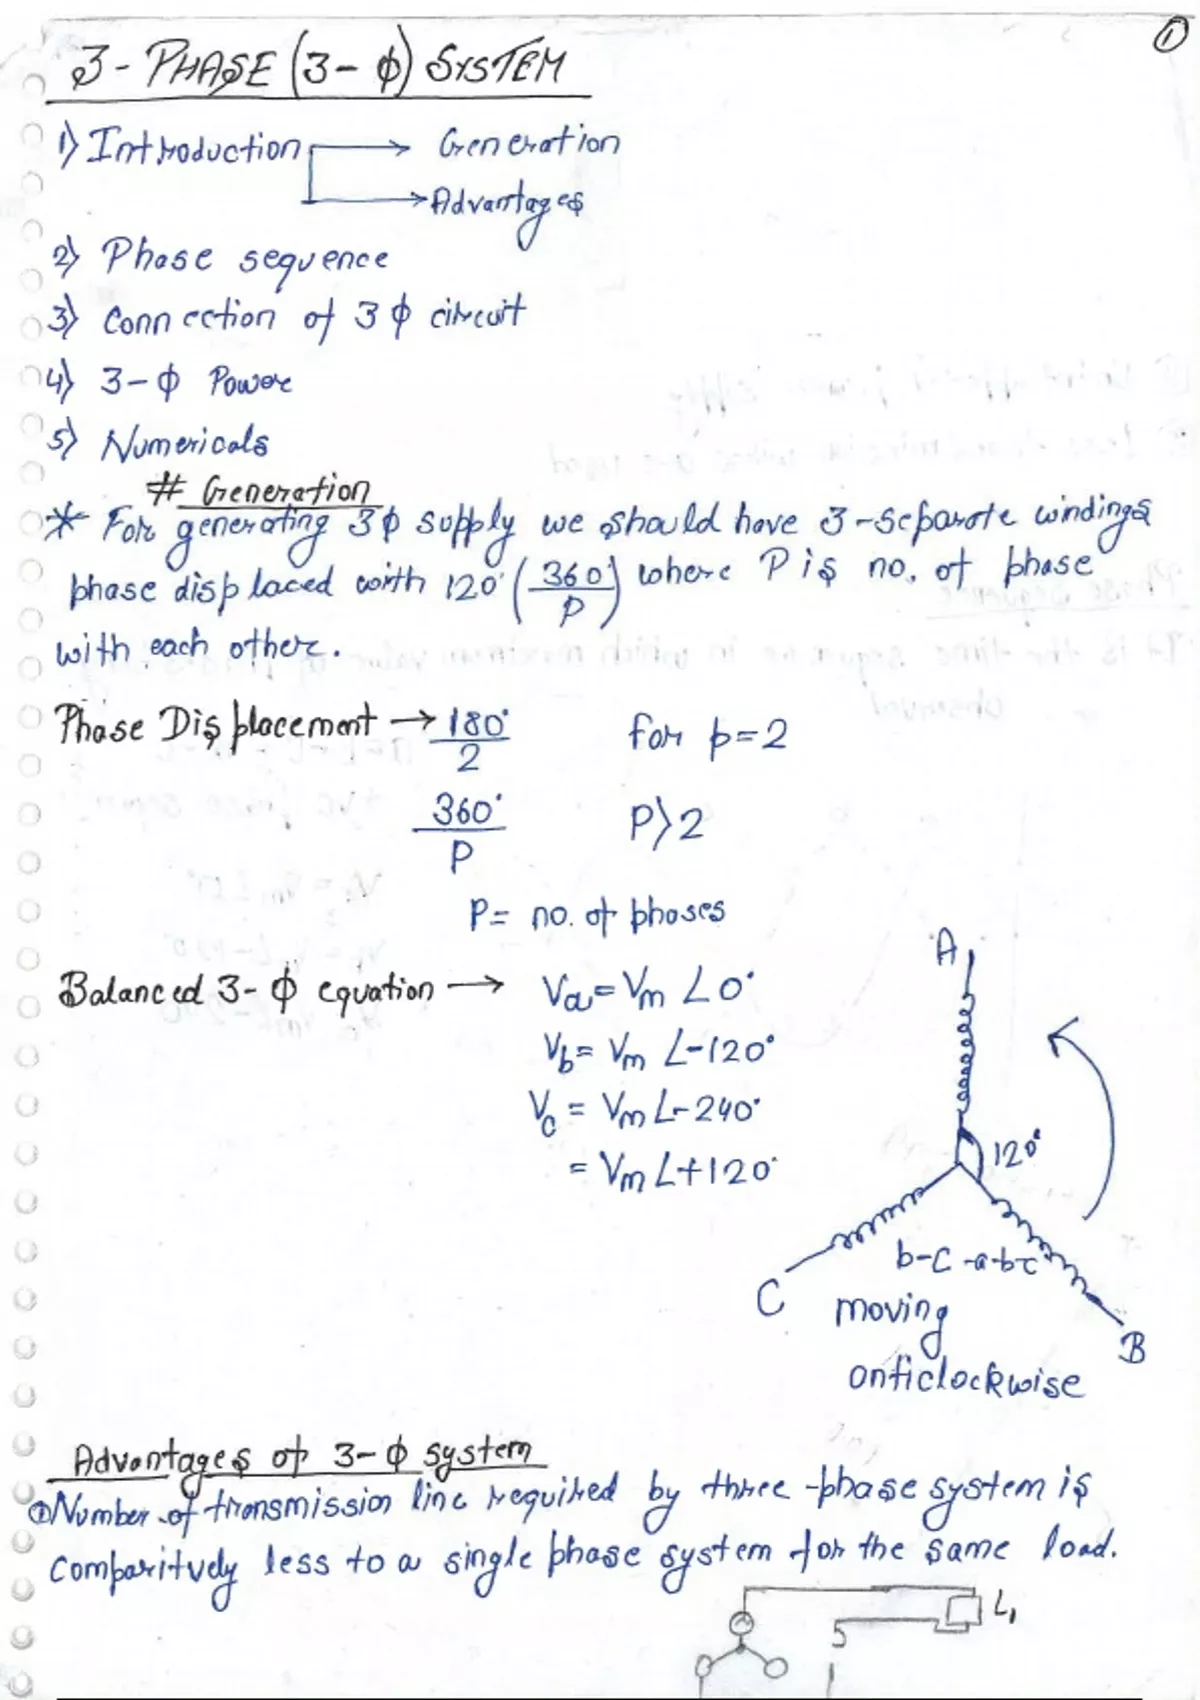 1
3-PHASE (3-ϕ) SYSTEM
1) Introduction → Generation
→ Advantages
2) Phase sequence
3) Connection of 3ϕ circuit
4) 3-ϕ Power
5) Numericals
# Generation
* For generating 3ϕ supply we should have 3-separate windings
phase displaced with 120° (360/P) where P is no. of phase
with each other.
Phase Displacement → 180°/2 for p=2
360°/P P>2
P= no. of phases
Balanced 3-ϕ equation → Va=Vm ∠0°
Vb= Vm ∠-120°
Vc = Vm ∠-240°
= Vm ∠+120°
A
120°
b-c-a-b-c
C
B
moving
anticlockwise
Advantages of 3-ϕ system
① Number of transmission line required by three-phase system is
comparitvely less to a single phase system for the same load.
L1